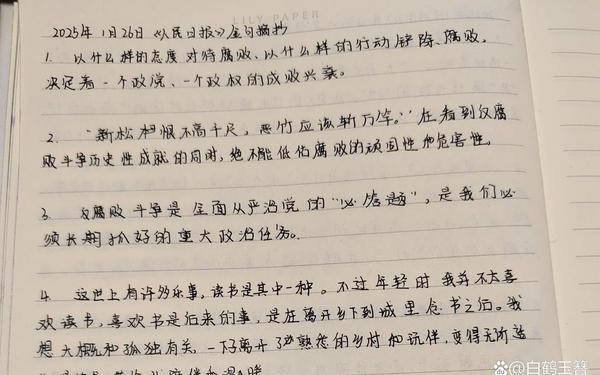 LILY PAPER
2025年1月26日《人民日报》金句摘抄
1. 以什么样的态度对待腐败、以什么样的行动铲除腐败,
决定着一个政党、一个政权的成败兴衰。
2. “新松恨不高千尺,恶竹应该斩万竿。”在看到反腐
败斗争历史性成就的同时,绝不能低估腐败的顽固性和危害性。
3. 反腐败斗争是全面从严治党的“必答题”,是我们必
须长期抓好的重大政治任务。
4. 这世上有许多乐事,读书是其中一种。不过年轻时我并不太喜
欢读书,喜欢书是后来的事,是在离开乡下到城里念书之后。我
想大概和孤独有关,一下离开了熟悉的乡村和玩伴,变得无所适
白鹤玉簪